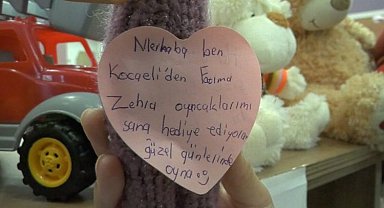 Merhaba ben
Kocaeli'den Fatma
Zehra oyuncaklarımı
sana hediye ediyorum
güzel günlerinde
oyna